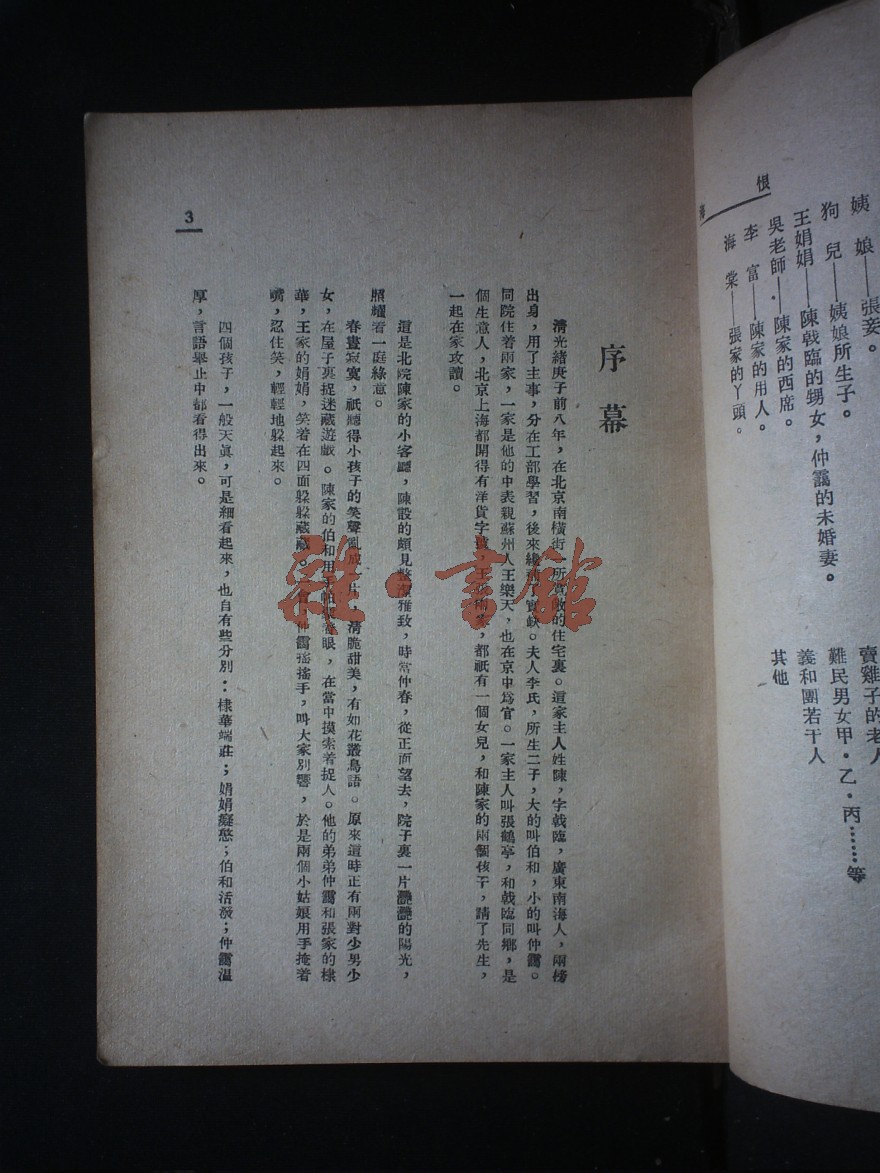 恨
姨　娘——張妾。
狗　兒——姨娘所生子。
王娟娟——陳戟臨的甥女，仲靄的未婚妻。
吳老師——陳家的西席。
李　富——陳家的用人。
海　棠——張家的丫頭。
賣雞子的老人
難民男女甲·乙·丙……等
義和團若干人
其他
序幕
清光緒庚子前八年，在北京南橫街一所寬敞的住宅裏。這家主人姓陳，字戟臨，廣東南海人，兩榜
出身，用了主事，分在工部學習，後來纔補了實缺。夫人李氏，所生二子，大的叫伯和，小的叫仲靄。
同院住着兩家，一家是他的中表親蘇州人王樂天，也在京中爲官。一家主人叫張鶴亭，和戟臨同鄉，是
個生意人，北京上海都開得有洋貨字號，王張兩家，都祇有一個女兒，和陳家的兩個孩子，請了先生，
一起在家攻讀。
這是北院陳家的小客廳，陳設的頗見整潔雅致，時當仲春，從正面望去，院子裏一片灩灩的陽光，
照耀着一庭綠意。
春晝寂寞，祇聽得小孩子的笑聲亂成一片，清脆甜美，有如花叢鳥語。原來這時正有兩對少男少
女，在屋子裏捉迷藏遊戲。陳家的伯和用手帕紮着眼，在當中摸索着捉人。他的弟弟仲靄和張家的棣
華，王家的娟娟，笑着在四面躲躲藏藏。仲靄搖搖手，叫大家別響，於是兩個小姑娘用手掩着
嘴，忍住笑，輕輕地躲起來。
四個孩子，一般天眞，可是細看起來，也自有些分別：棣華端莊；娟娟癡憨；伯和活潑；仲靄溫
厚，言語舉止中都看得出來。
3
雜·書館